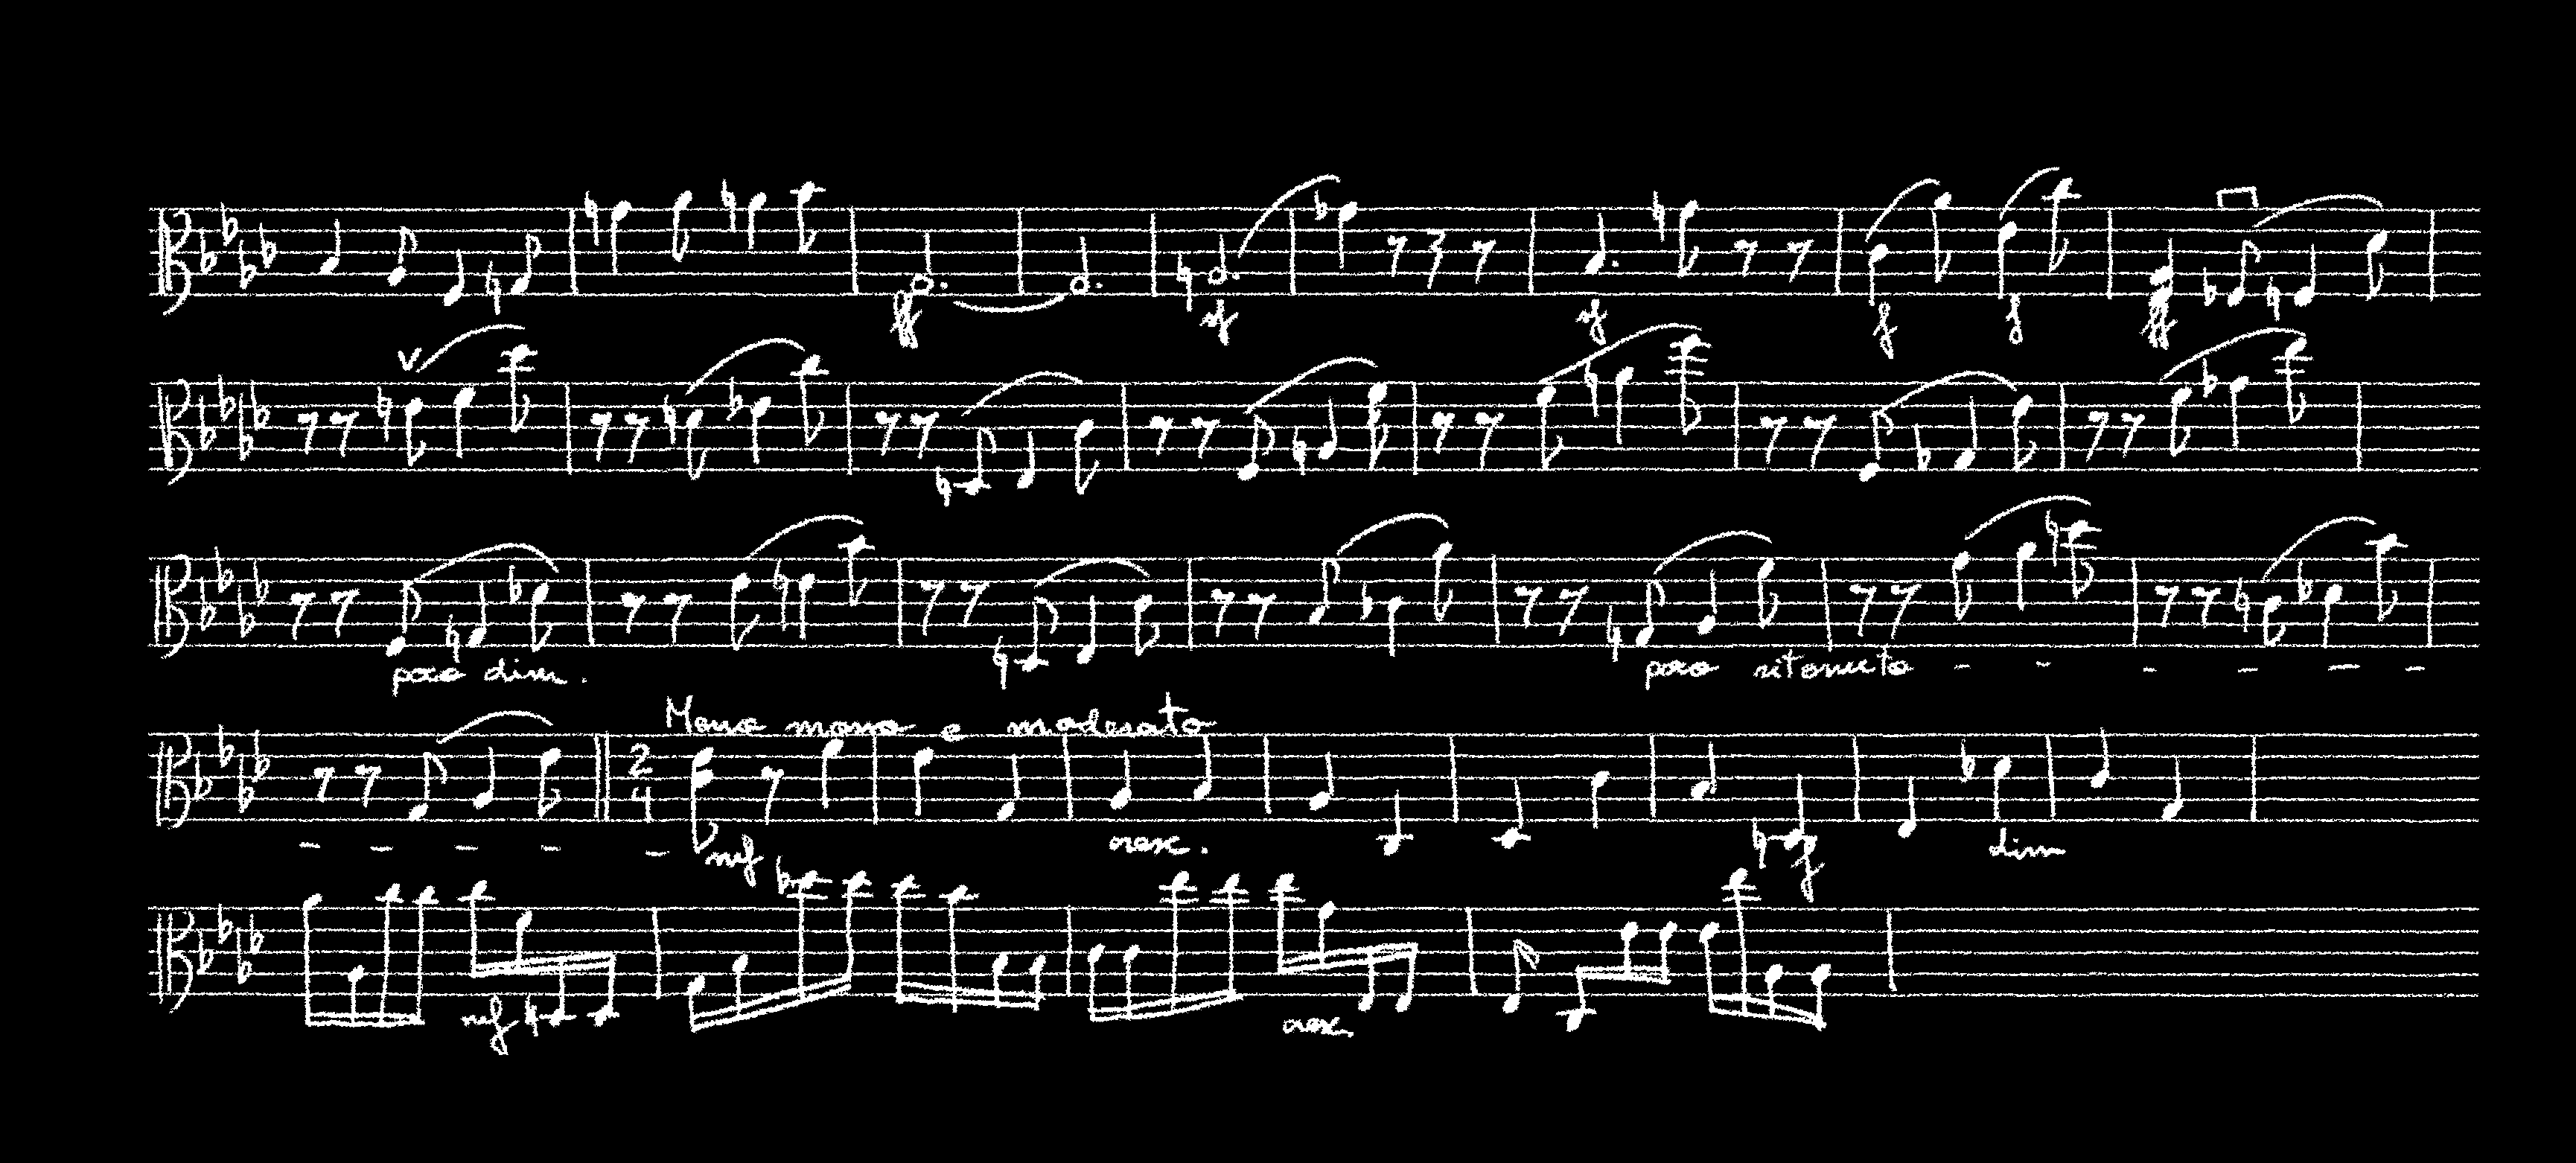 ff sf sf f f ff
V
poco dim. poco ritenuto
Meno mosso e moderato
2
4
mf cresc. f dim
mf cresc.